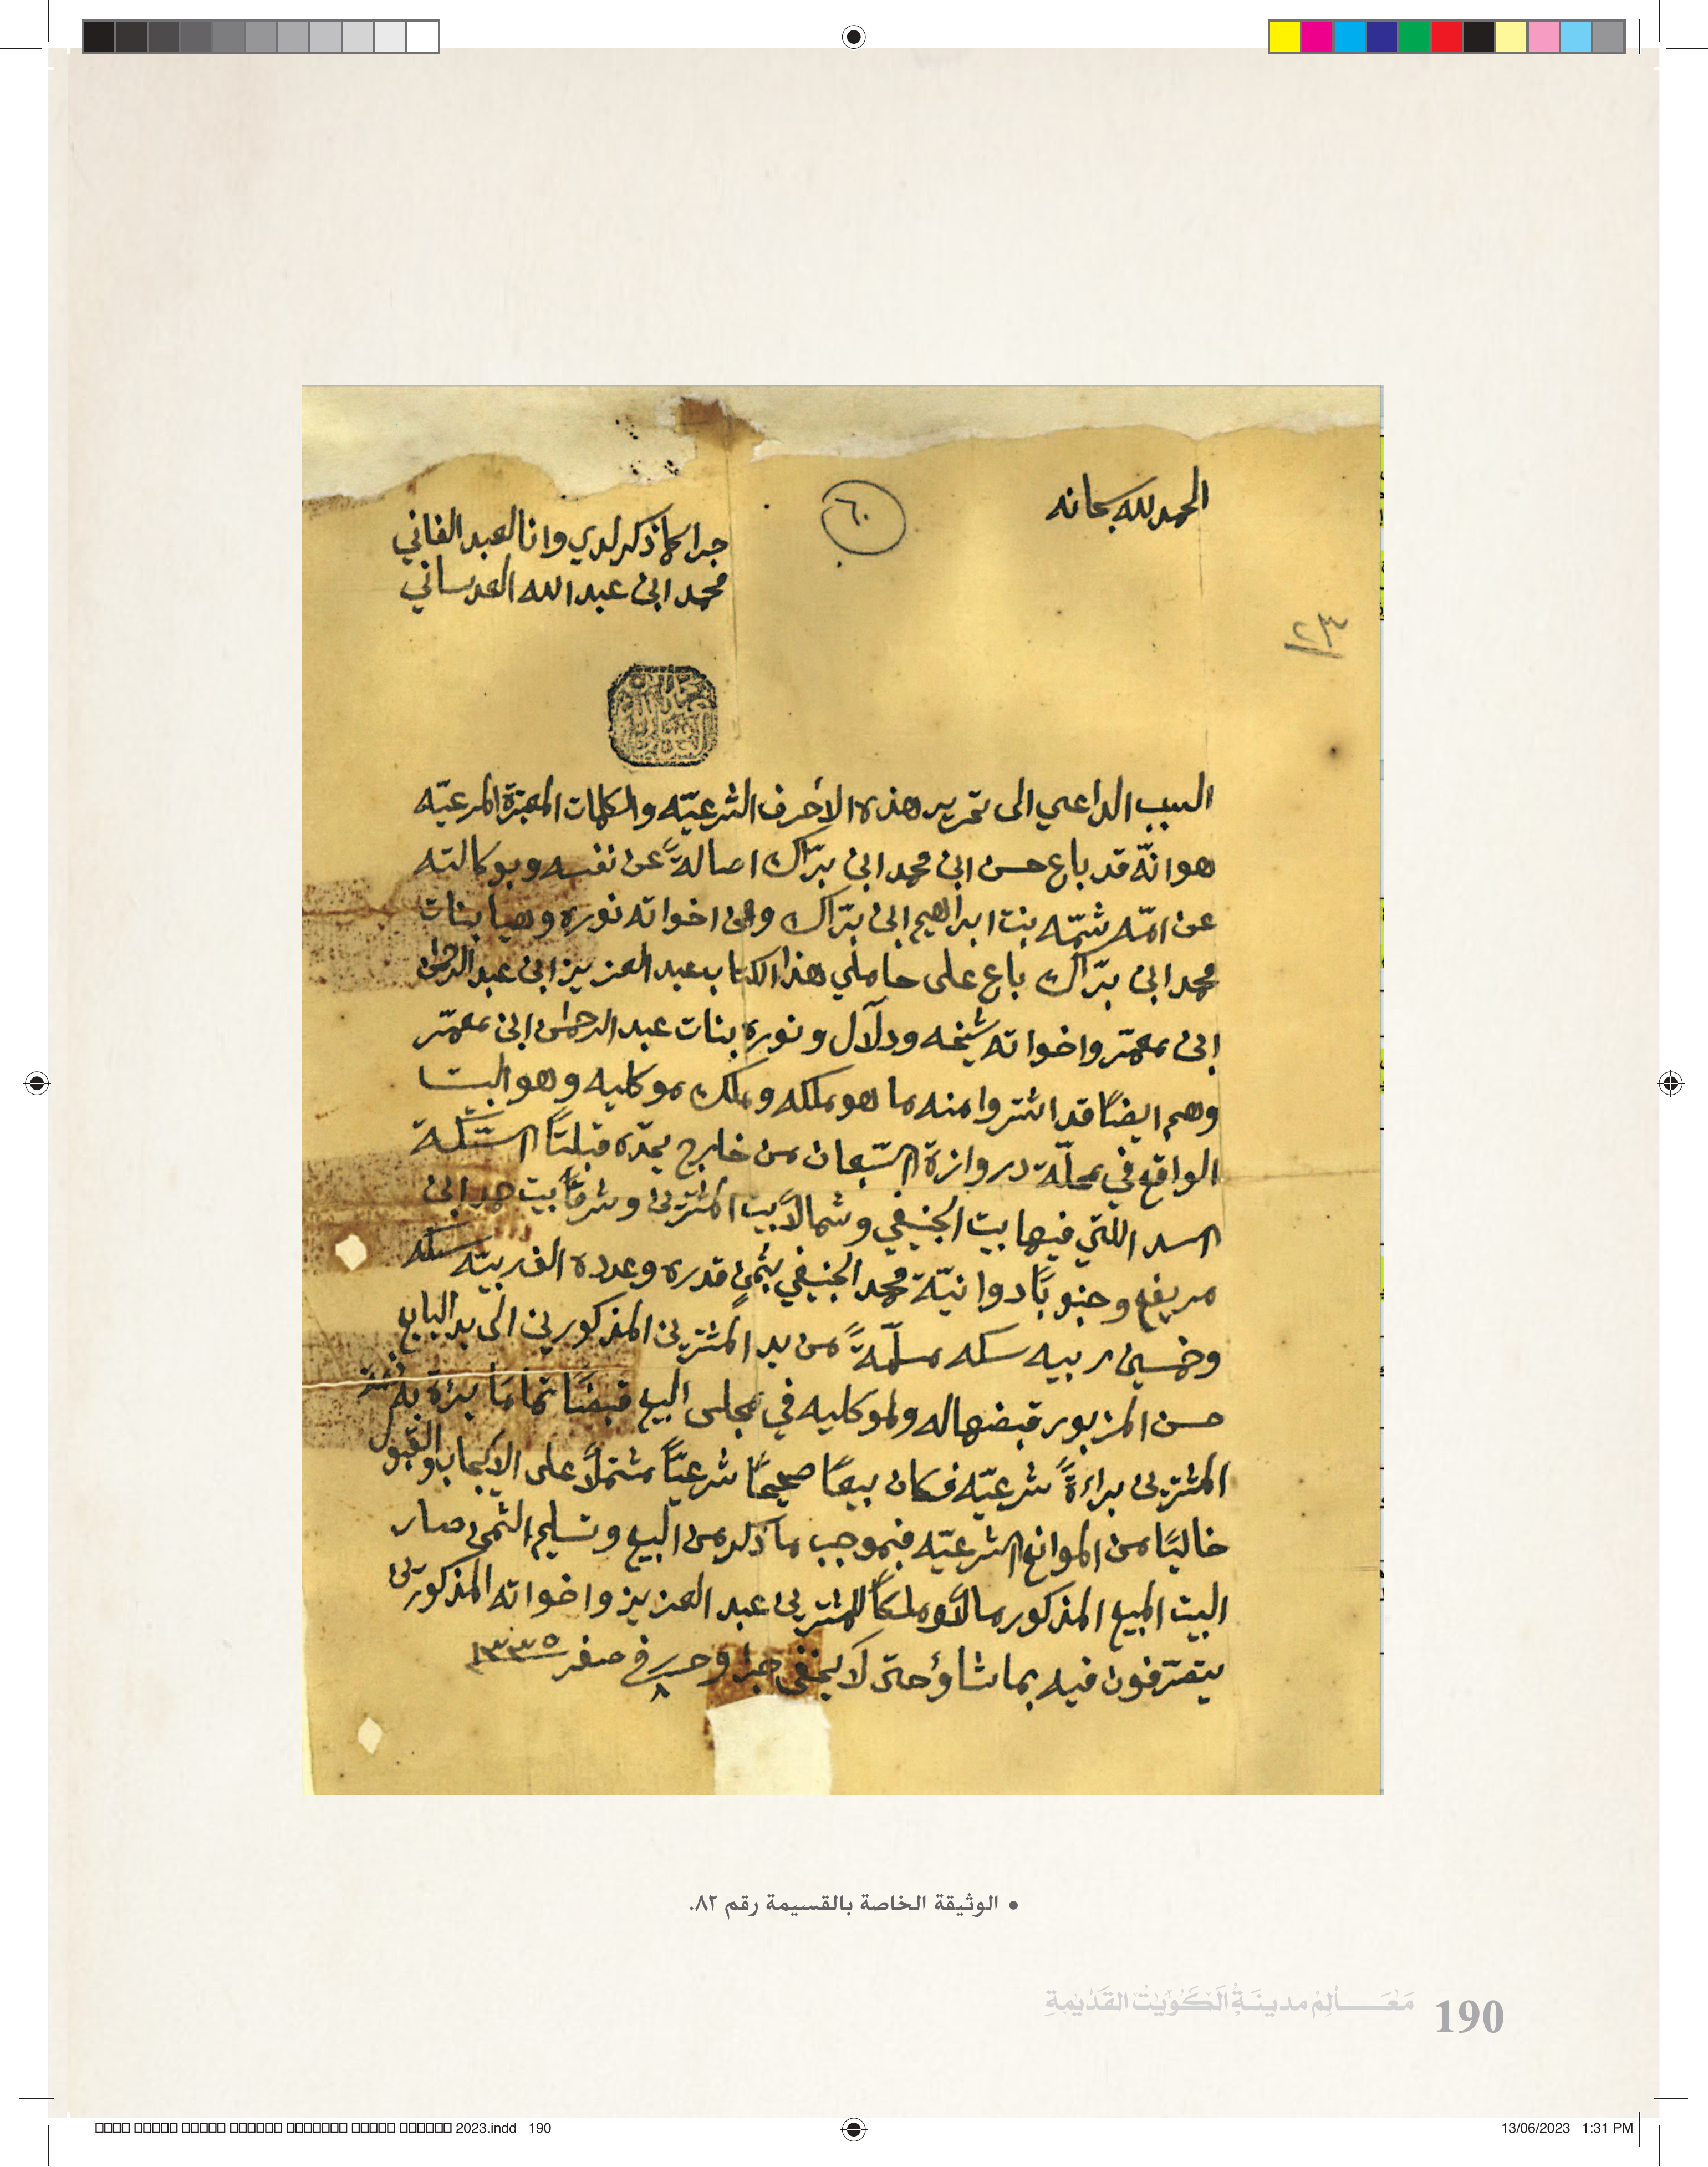 الحمد لله سبحانه
٦٠
جرا كما ذكر لدي وانا العبد الفاني
محمد ابن عبد الله العدساني
٢٣
السبب الداعي الى تحرير هذه الاحرف الشرعيّه والكلمات المعتبرة المرعيّه
هو انّه قد باع حسن ابن محمد ابن برّاك اصالةً عن نفسه وبوكالته
عن امّه شمّه بنت ابراهيم ابن برّاك وعن اخواته نوره وهيا بنات
محمد ابن برّاك باع على حاملي هذا الكتاب عبد العزيز ابن عبد الرحمن
ابن معمّر واخواته شيخه ودلآل ونوره بنات عبد الرحمن ابن معمّر
وهم ايضًا قد اشتروا منه ما هو ملكه وملك موكليه وهو البيت
الواقع في محلّة دروازة السّبعان من خارج يحدّه قبلتًا السّكة
السد اللتي فيها بيت الجنيفي وشمالاً بيت المشترين وشرقًا بيت حمد ابن
مريفع وجنوبًا دوانيّة محمد الجنيفي بثمنٍ قدره وعدده الف ربيّه سكه
وخمسين ربيه سكه مسلّمةً من يد المشترين المذكورين الى يد البايع
حسن المزبور قبضها له ولموكليه في مجلس البيع قبضًا تمامًا بئرة به ذمّة
المشترين براءةً شرعيّه فكان بيعًا صحيحًا شرعيًّا مشتملاً على الايجاب والقبول
خاليًا من الموانع الشرعيّه فبموجب ما ذكر من البيع وتسليم الثمن صار
البيت المبيع المذكور مالاً وملكًا للمشترين عبد العزيز واخواته المذكورين
يتصّرفون فيه بما شاؤ حتى لا يخفى جرا وحرر في ٨ صفر ١٣٣٥
• الوثيقة الخاصة بالقسيمة رقم ٨٢.
مَعَالِم مدينَةِ الكُوَيْت القَدْيمةِ
190
2023.indd 190
13/06/2023 1:31 PM